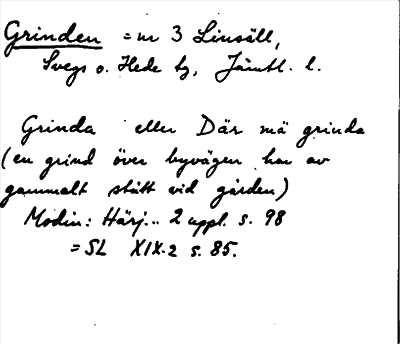 Grinden = nr 3 Linsäll,
Svegs o. Hede tg, Jämtl. l.
Grinda eller Där mä grinda
(en grind över byvägen har av
gammalt stått vid gården)
Modin: Härj... 2 uppl. s. 98
= SL XIX.2 s. 85.